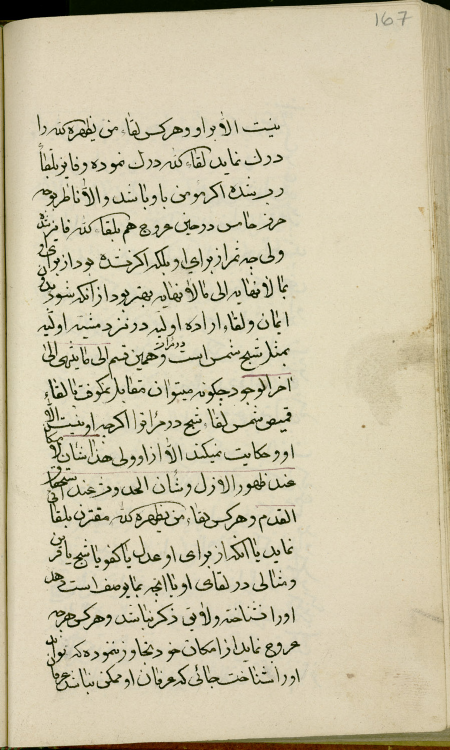 167
نیست الا از برای او و هر کس لقاء من یظهره الله را
درک نماید لقاء الله درک نموده و فایز بلقاء
رب شده اگر مومن باو باشد و الا ناظر بوجه
حرف خامس در حین عروج هم بلقاء الله فایز شده
ولی چه ثمر از برای او بلکه اگر نشده بود از برای او
بما لا نهایه الی ما لا نهایه بهتر بود از آنکه شود بدون
ایمان و لقاء اراده اولیه در نزد مشیت اولیه
بمثل شبح شمس است در مرآت و همین قسم الی ما ینتهی الی
آخر الوجود چگونه میتوان مقابل نمود با لقاء
قمیص شمس لقاء شبح در مرآت را اگر چه او نیست الا
او و حکایت نمیکند الا از او ولی هذا شأن
عند ظهور الازل و شأن الحد
القدم و هر کس بلقاء من یظهره الله مقترن بلقا
نماید یا آنکه از برای او عدل یا کفو یا شبح یا قرین
و مثالی در لقای او یا آنچه بما یوصف است دهد
او را نشناخته و لایق ذکر نباشد و هر کس هر چه
عروج نماید از امکان خود تجاوز ننموده که تواند
او را شناخت جائی که عرفان او ممکن نباشد عرفان